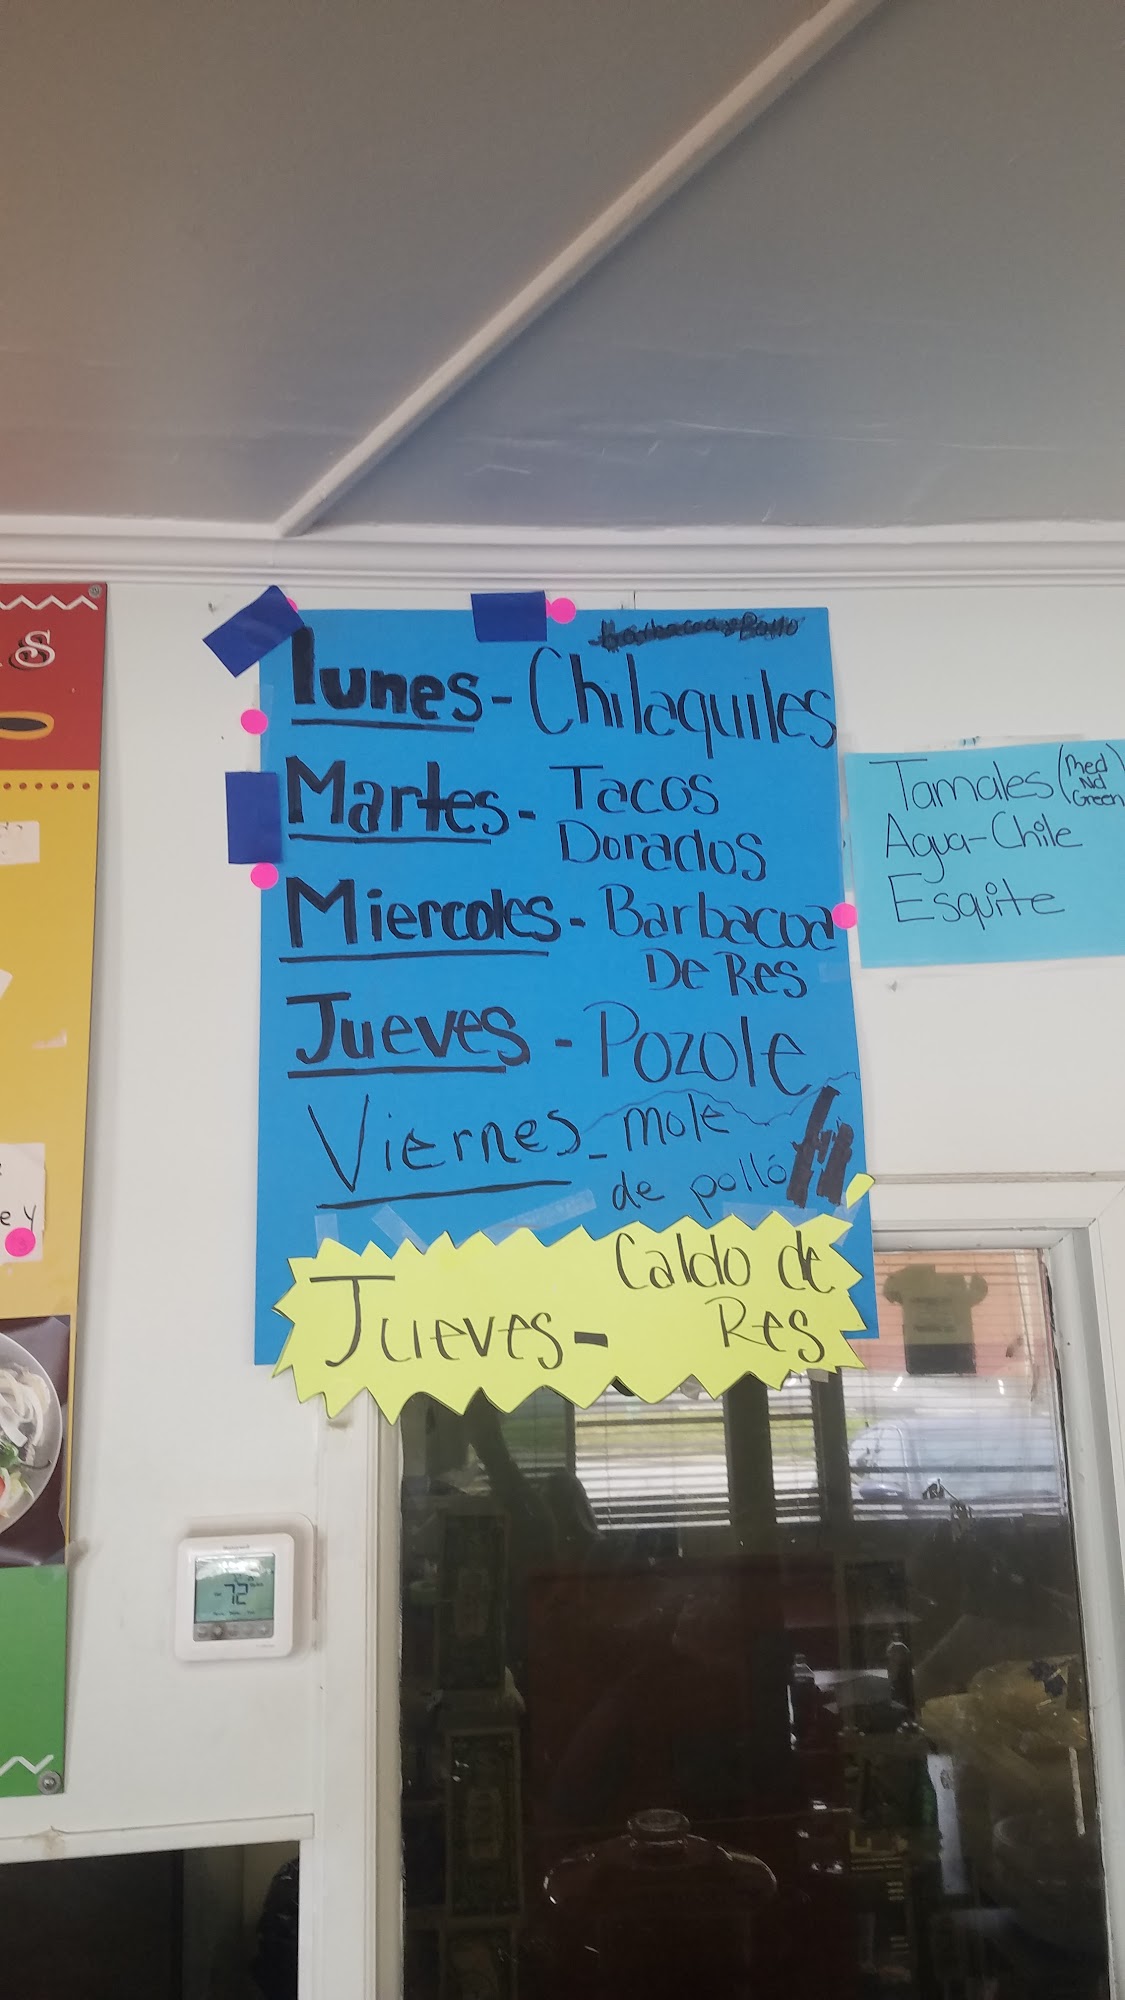 lunes - Chilaquiles
Martes - Tacos
Dorados
Miercoles - Barbacoa
De Res
Jueves - Pozole
Viernes - mole
de polló
Jueves - Caldo de
Res
Tamales (Red
Nd
Green)
Agua-Chile
Esquite
S
e y
72